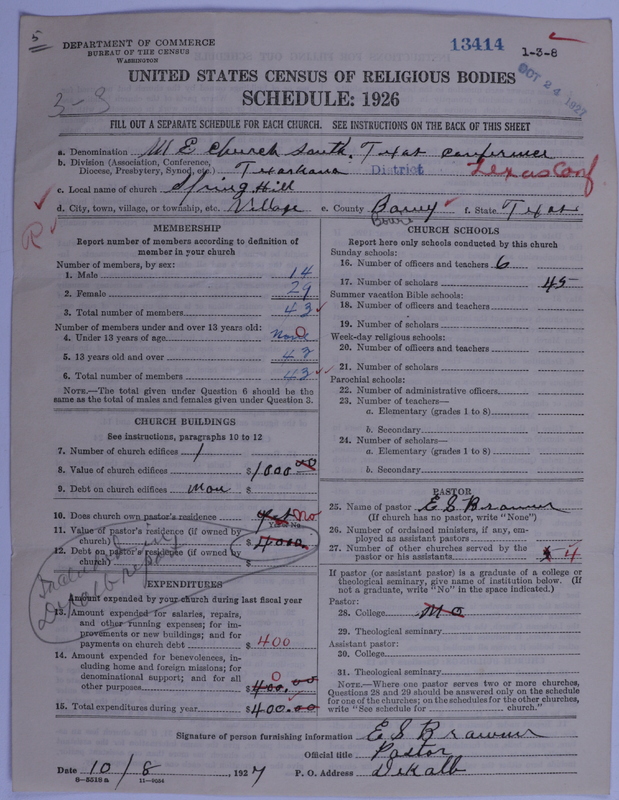 5
DEPARTMENT OF COMMERCE
BUREAU OF THE CENSUS
WASHINGTON
13414
1-3-8
OCT 24 1927
UNITED STATES CENSUS OF RELIGIOUS BODIES
3-8
SCHEDULE: 1926
FILL OUT A SEPARATE SCHEDULE FOR EACH CHURCH. SEE INSTRUCTIONS ON THE BACK OF THIS SHEET
a. Denomination M E Church South, Texas Conference
b. Division (Association, Conference, Diocese, Presbytery, Synod, etc.) Texarkana District Texas Conf
c. Local name of church Spring Hill
d. City, town, village, or township, etc. Village e. County Bowie f. State Texas
R
MEMBERSHIP
Report number of members according to definition of member in your church
Number of members, by sex:
1. Male 14
2. Female 29
3. Total number of members 43
Number of members under and over 13 years old:
4. Under 13 years of age None 0
5. 13 years old and over 43
6. Total number of members 43
NOTE.—The total given under Question 6 should be the same as the total of males and females given under Question 3.
CHURCH BUILDINGS
See instructions, paragraphs 10 to 12
7. Number of church edifices 1
8. Value of church edifices $1000.00
9. Debt on church edifices $
10. Does church own pastor's residence Yes No
Yes or No
11. Value of pastor's residence (if owned by church) $4000
12. Debt on pastor's residence (if owned by church) $
Included in DeKalb report
EXPENDITURES
Amount expended by your church during last fiscal year
13. Amount expended for salaries, repairs, and other running expenses; for improvements or new buildings; and for payments on church debt $400
14. Amount expended for benevolences, including home and foreign missions; for denominational support; and for all other purposes $400.00 0
15. Total expenditures during year $400.00
CHURCH SCHOOLS
Report here only schools conducted by this church
Sunday schools:
16. Number of officers and teachers 6
17. Number of scholars 45
Summer vacation Bible schools:
18. Number of officers and teachers
19. Number of scholars
Week-day religious schools:
20. Number of officers and teachers
21. Number of scholars
Parochial schools:
22. Number of administrative officers
23. Number of teachers—
a. Elementary (grades 1 to 8)
b. Secondary
24. Number of scholars—
a. Elementary (grades 1 to 8)
b. Secondary
PASTOR
25. Name of pastor E S Brawner
(If church has no pastor, write "None")
26. Number of ordained ministers, if any, employed as assistant pastors
27. Number of other churches served by the pastor or his assistants 4
If pastor (or assistant pastor) is a graduate of a college or theological seminary, give name of institution below. (If not a graduate, write "No" in the space indicated.)
Pastor:
28. College No
29. Theological seminary
Assistant pastor:
30. College
31. Theological seminary
NOTE.—Where one pastor serves two or more churches, Questions 28 and 29 should be answered only on the schedule for one of the churches; on the schedules for the other churches, write "See schedule for ________ church."
Signature of person furnishing information E S Brawner
Official title Pastor
Date 10/8, 1927 P. O. Address DeKalb
8-5318a 11-9054